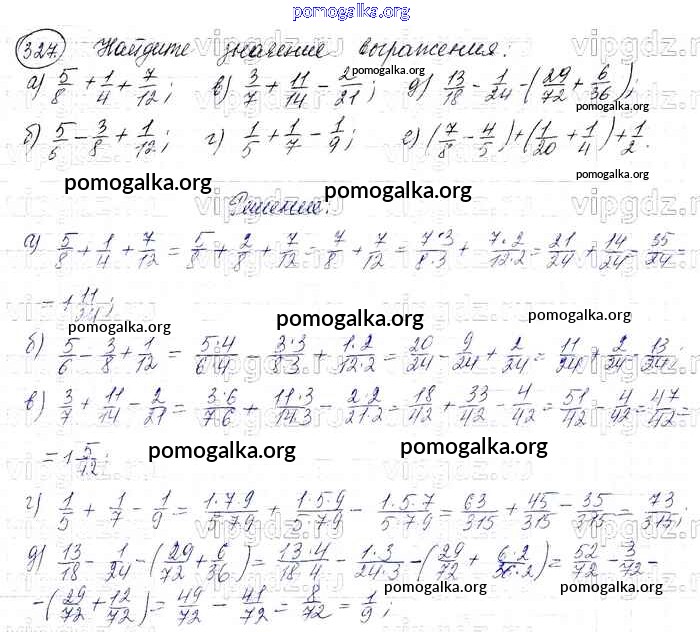 pomogalka.org
327. Найдите значение выражения:
а) 5/8 + 1/4 + 7/12; в) 3/7 + 11/14 − 2/21; д) 13/18 − 1/24 − (29/72 + 6/36);
pomogalka.org
б) 5/6 − 3/8 + 1/12; г) 1/5 + 1/7 − 1/9; е) (7/8 − 4/5) + (1/20 + 1/4) + 1/2.
pomogalka.org
pomogalka.org pomogalka.org
Решение:
а) 5/8 + 1/4 + 7/12 = 5/8 + 2/8 + 7/12 = 7/8 + 7/12 = 7·3/8·3 + 7·2/12·2 = 21/24 + 14/24 = 35/24 =
= 1 11/24;
pomogalka.org pomogalka.org pomogalka.org
б) 5/6 − 3/8 + 1/12 = 5·4/6·4 − 3·3/8·3 + 1·2/12·2 = 20/24 − 9/24 + 2/24 = 11/24 + 2/24 = 13/24;
в) 3/7 + 11/14 − 2/21 = 3·6/7·6 + 11·3/14·3 − 2·2/21·2 = 18/42 + 33/42 − 4/42 = 51/42 − 4/42 = 47/42 =
= 1 5/42;
pomogalka.org pomogalka.org
г) 1/5 + 1/7 − 1/9 = 1·7·9/5·7·9 + 1·5·9/5·7·9 − 1·5·7/5·7·9 = 63/315 + 45/315 − 35/315 = 73/315;
д) 13/18 − 1/24 − (29/72 + 6/36) = 13·4/18·4 − 1·3/24·3 − (29/72 + 6·2/36·2) = 52/72 − 3/72 −
− (29/72 + 12/72) = 49/72 − 41/72 = 8/72 = 1/9;
pomogalka.org pomogalka.org